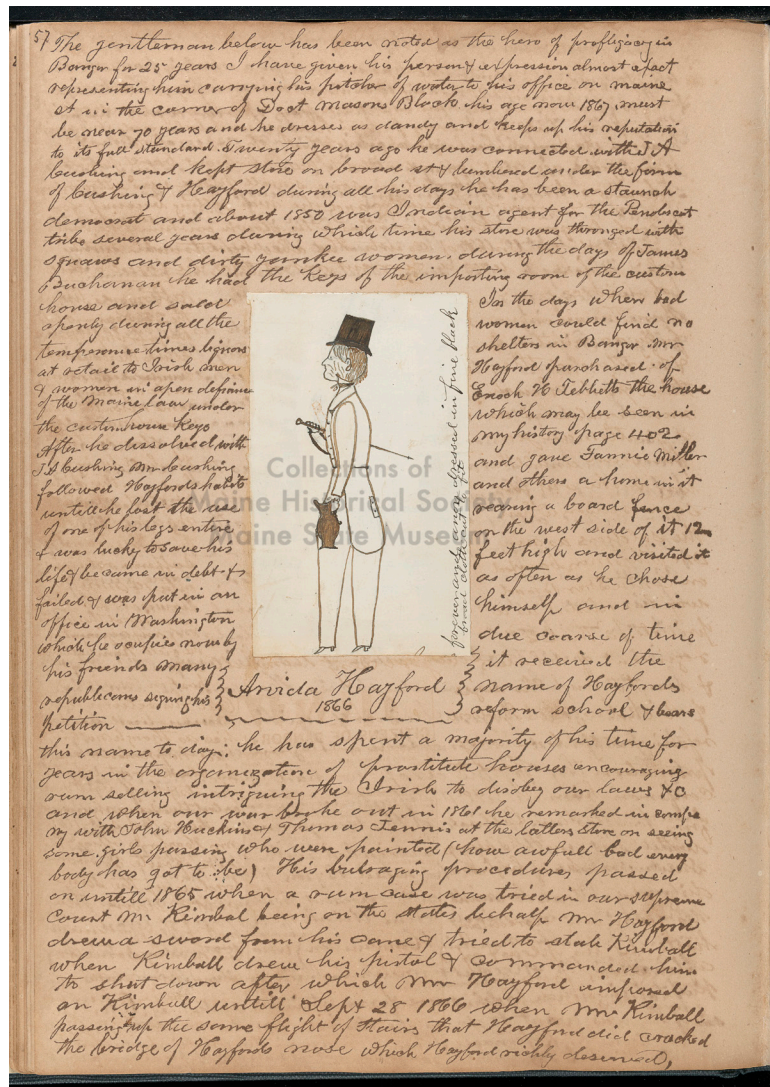 57 The gentleman below has been noted as the hero of profligacy in
Bangor for 25 years I have given his person & expression almost exact
representing him carrying his pitcher of water to his office on maine
st in the corner of Doct Masons Block his age now 1867 must
be near 70 years and he dresses as dandy and keeps up his reputation
to its full standard. Twenty years ago he was connected with J A
Cushing and kept store on broad st & lumbered under the firm
of Cushing & Hayford during all his days he has been a staunch
democrat and about 1850 was Indian agent for the Penobscot
tribe several years during which time his store was thronged with
squaws and dirty yankee women. during the days of James
Buchanan he had the keys of the importing room of the custom
house and sold
openly during all the
temperance times liquors
at retail to Irish men
& women in open defiance
of the Maine law under
the custom house keys
After he dissolved with
J S Cushing Mr Cushing
followed Hayfords habits
untill he lost the use
of one of his legs entire
& was lucky to save his
life & became in debt &
failed & was put in an
office in Washington
which he ocupies now by
his friends many
republicans signing his
petition
forever and anon dressed in fine black
broad cloth
Arvida Hayford
1866
In the days when bad
women could find no
shelters in Bangor Mr
Hayford purchased of
Enoch H Tebbetts the house
which may be seen in
my history page 402
and gave Fannie Miller
and others a home in it
rearing a board fence
on the west side of it 12
feet high and visited it
as often as he chose
himself and in
due coarse of time
it received the
name of Hayfords
reform school & bears
this name to day; he has spent a majority of his time for
years in the organization of prostitute houses encouraging
rum selling intriguing the Irish to disobey our laws &c
and when our war broke out in 1861 he remarked in compa
ny with John Huckins & Thomas Jennis at the latters store on seeing
some girls passing who were painted (how awfull bad every
body has got to be) His outraging procedures passed
on untill 1865 when a rum case was tried in our supreme
Court Mr Kimbal being on the states behalf Mr Hayford
drew a sword from his cane & tried to stab Kimball
when Kimball drew his pistol & commanded him
to shut down after which Mr Hayford imposed
on Kimball untill Sept 28 1866 when Mr Kimball
passing up the same flight of stairs that Hayford did cracked
the bridge of Hayfords nose which Hayford richly deserved,
Collections of
Maine Historical Society
Maine State Museum